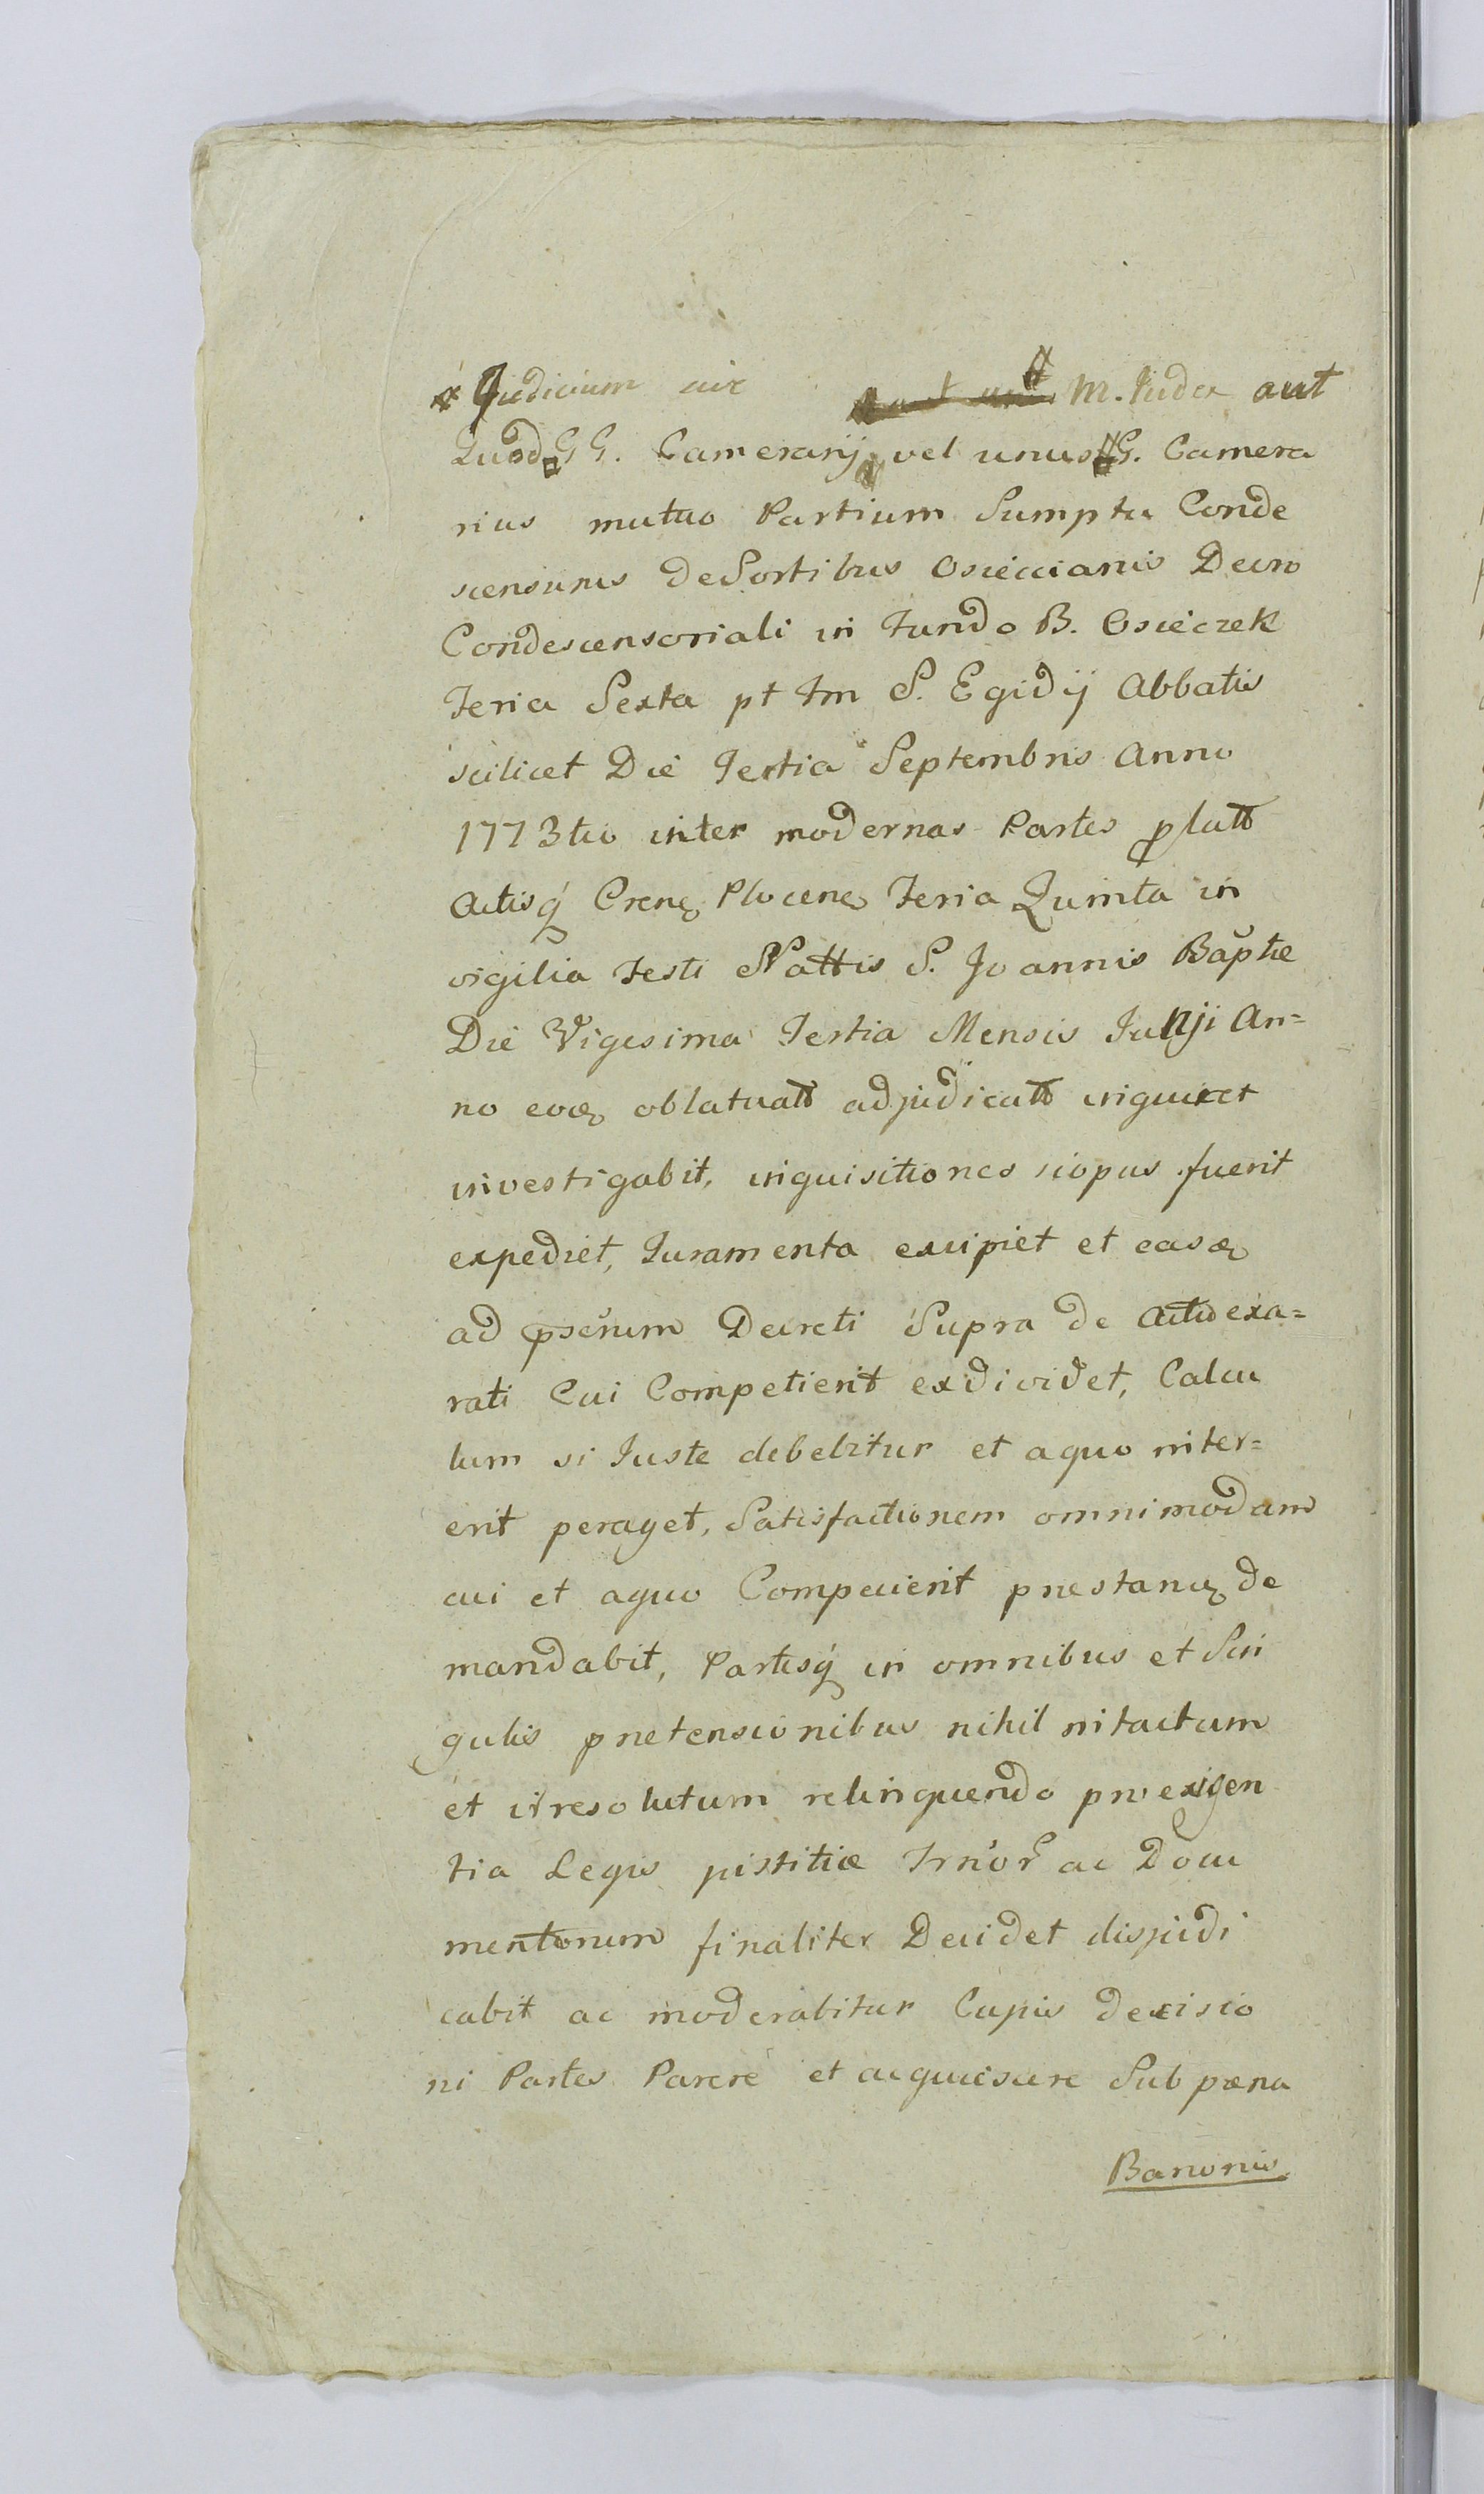 Judicium M. Iudex aut
Quod GG. Camerarij vel unus G. Camera
rius mutuo Partium Sumptu Conde
scensurus deSortibus Osieccianis Decro
Condescensoriali in Fundo B. Osieczek
Feria Sexta pt Fm S. Egidij Abbatis
scilicet Die Tertia Septembris Anno
1773tio inter modernas Partes platt
Actisq́ Crenę Plocenę Feria Quinta in
vigilia Festi Nattis S. Joannis Baptie
Die Vigesima Tertia Mensis Iunji An=
no eoę oblatuatt adjudicatt inquiret
investigabit, inquisitiones siopus fuerit
expediet, Iuramenta excipiet et easę
ad pserum Decreti Supra de Actu exa=
rati Cui Competierit exdividet, Calcu
lum si Iuste debebitur et aquo inter=
erit peraget, Satisfactionem omnimodam
cui et aquo Competierit prestanę de
mandabit, Partesq́ in omnibus et Sin
gulis pretensionibus nihil intactum
et irresolutum relinquendo pro exigen
tia Legis justitiæ Irnor ac Docu
mentorum finaliter Decidet disjudi
cabit ac moderabitur Cujus decisio
ni Partes Parere et acquiescere Sub pæna
Bannonis